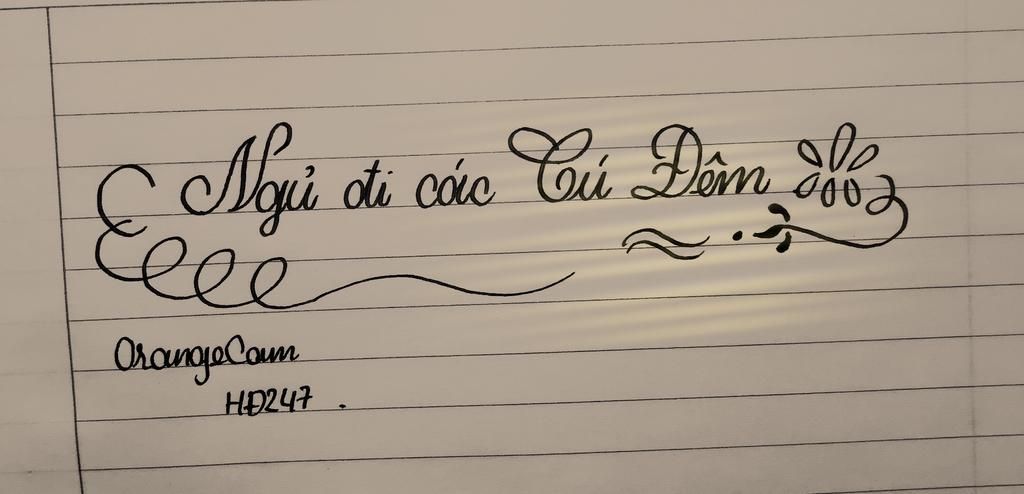 Ngủ đi các Cú Đêm
OrangeCam
HĐ247 .